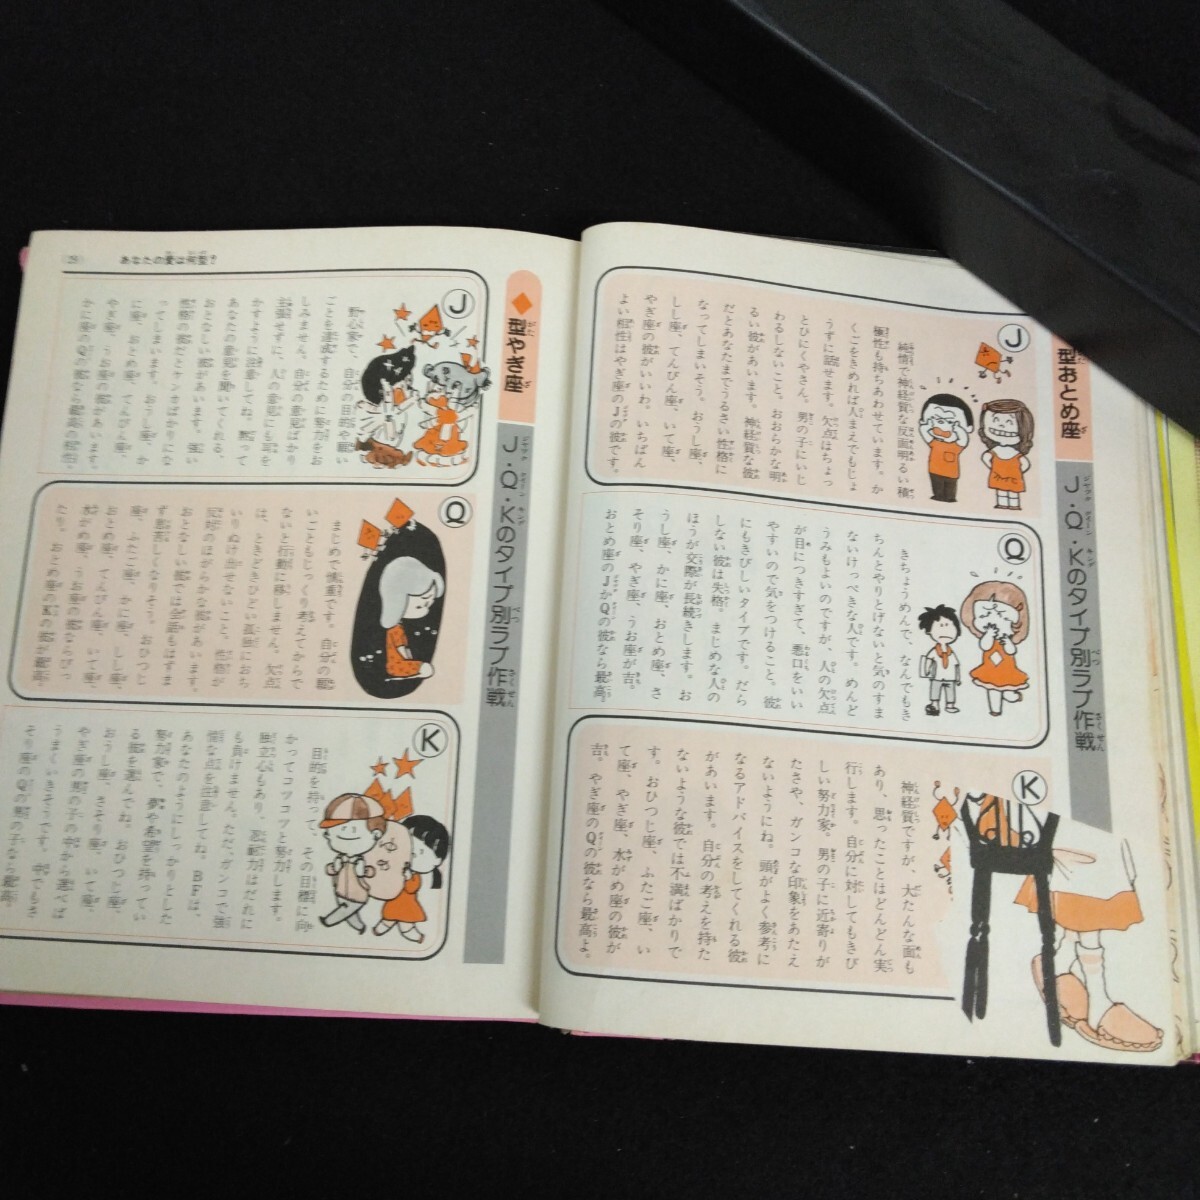 型おとめ座
J・Q・Kのタイプ別ラブ作戦
J
純情で神経質な反面明るい積
極性も持ちあわせています。か
くごをきめれば人まえでもじょ
うずに話せます。欠点はちょっ
とひにくやさん。男の子にいじ
わるしないこと。おおらかな明
るい彼があいます。神経質な彼
だとあなたまでうるさい性格に
なってしまいそう。おうし座、
しし座、てんびん座、いて座、
やぎ座の彼がいいわ。いちばん
よい相性はやぎ座のJの彼です。
Q
きちょうめんで、なんでもき
ちんとやりとげないと気のすま
ないけっぺきな人です。めんど
うみもよいのですが、人の欠点
が目につきすぎて、悪口をいい
やすいので気をつけること。彼
にもきびしいタイプです。だら
しない彼は失格。まじめな人の
ほうが交際が長続きします。お
うし座、かに座、おとめ座、さ
そり座、やぎ座、うお座が吉。
おとめ座のJかQの彼なら最高。
K
神経質ですが、大たんな面も
あり、思ったことはどんどん実
行します。自分に対してもきび
しい努力家。男の子に近寄りが
たさや、ガンコな印象をあたえ
ないようにね。頭がよく参考に
なるアドバイスをしてくれる彼
があいます。自分の考えを持た
ないような彼では不満ばかりで
す。おひつじ座、ふたご座、い
て座、やぎ座、水がめ座の彼が
吉。やぎ座のQの彼なら最高よ。
あなたの愛は何型?
◆型やぎ座
J・Q・Kのタイプ別ラブ作戦
J
野心家で、自分の目的や願い
ごとを達成するために努力をお
しみません。自分の意見ばかり
主張せずに、人の意見にも耳を
かすように注意してね。黙って
あなたの意見を聞いてくれる、
おとなしい彼があいます。強い
性格の彼だとケンカばかりにな
ってしまいます。おうし座、か
に座、おとめ座、てんびん座、
やぎ座、うお座の彼があいます。
かに座のQの彼なら最高の相性。
Q
まじめで慎重です。自分の願
いごともじっくり考えてからで
ないと行動に移しません。欠点
は、ときどきひどい孤独におち
いりぬけ出せないこと。性格が
反対のほがらかな彼があいます。
おとなしい彼では会話もはずま
ず息苦しくなりそう。おひつじ
座、ふたご座、かに座、しし座、
おとめ座、てんびん座、いて座、
水がめ座、うお座の彼ならぴっ
たり。おとめ座のKの彼が最高。
K
目的を持って、その目標に向
かってコツコツと努力します。
独立心もあり、忍耐力はだれに
も負けません。ただ、ガンコで強
情な点を注意してね。BFは、
あなたのようにしっかりとした
努力家で、夢や希望を持ってい
る彼を選んでね。おひつじ座、
おうし座、さそり座、いて座、
やぎ座の男の子の中から選べば
うまくいきそうです。中でもさ
そり座のQの男の子なら最高。